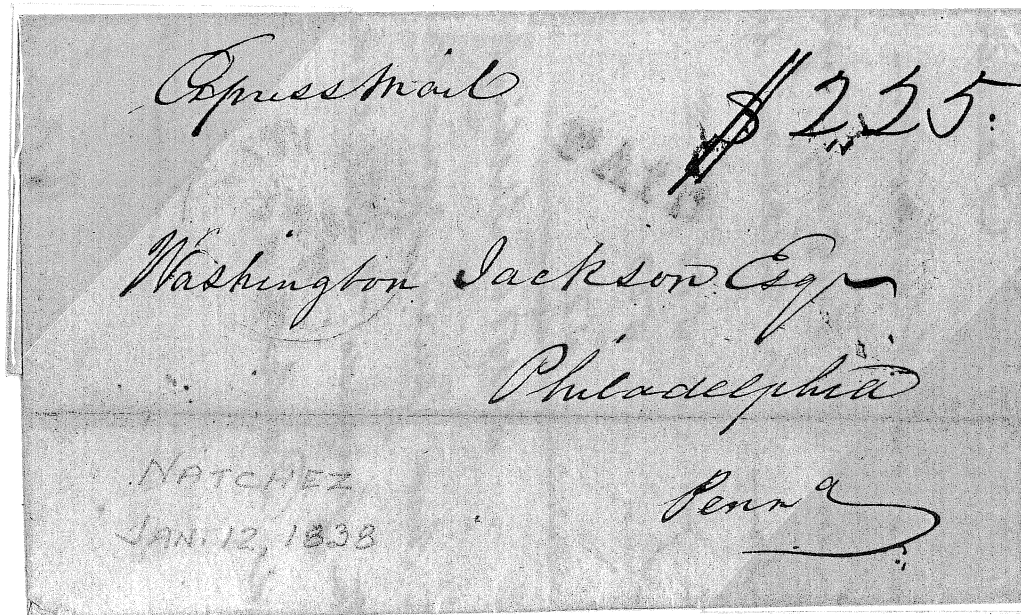 Express Mail
$ 2,25.
PAID
Washington Jackson Esqr
Philadelphia
Penna
NATCHEZ
JAN. 12, 1838